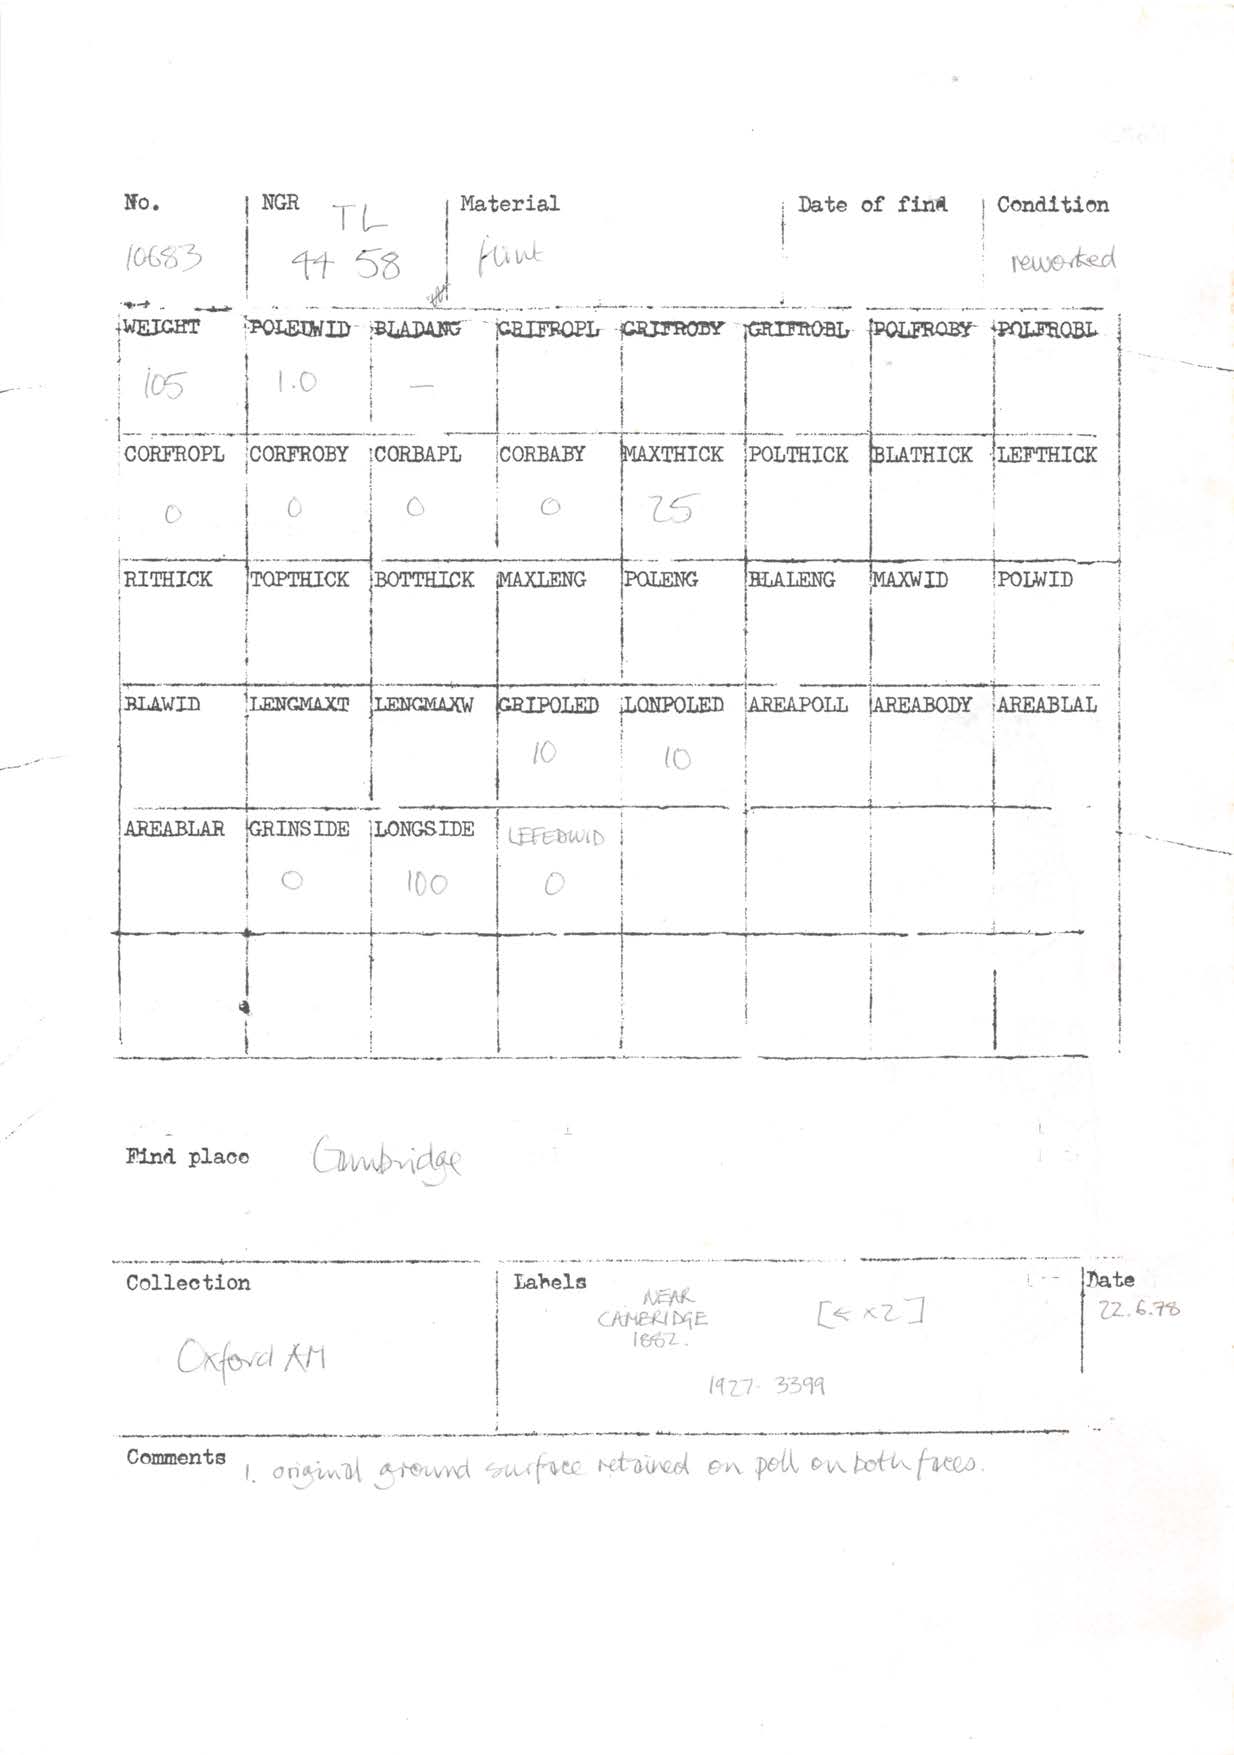 No. NGR TL Material Date of find Condition
10683 44 58 flint reworked
WEIGHT POLEDWID BLADANG GRIFROPL GRIFROBY GRIFROBL POLFROBY POLFROBL
105 1.0 —
CORFROPL CORFROBY CORBAPL CORBABY MAXTHICK POLTHICK BLATHICK LEFTHICK
0 0 0 0 25
RITHICK TOPTHICK BOTTHICK MAXLENG POLENG BLALENG MAXWID POLWID
BLAWID LENGMAXT LENGMAXW GRIPOLED LONPOLED AREAPOLL AREABODY AREABLAL
10 10
AREABLAR GRINSIDE LONGSIDE LEFEDWID
0 100 0
Find place Cambridge
Collection Labels Date
NEAR
CAMBRIDGE [← x2] 22.6.78
1882.
Oxford AM
1927. 3399
Comments 1. original ground surface retained on poll on both faces.